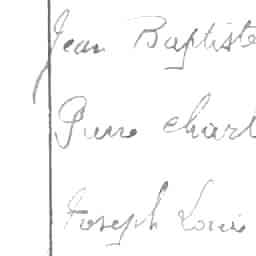 Jean Baptiste
Pierre Charl
Joseph Louis